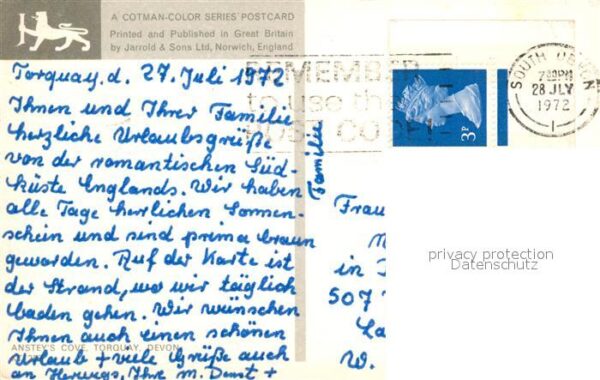 A COTMAN-COLOR SERIES POSTCARD
Printed and Published in Great Britain
by Jarrold & Sons Ltd, Norwich, England
REMEMBER
to use the
POST CODE
SOUTH DEVON
PM
28 JLY
1972
3P
Torquay, d. 27. Juli 1972
Ihnen und Ihrer Familie
herzliche Urlaubsgrüße
von der romantischen Süd-
küste Englands. Wir haben
alle Tage herrlichen Sonnen-
schein und sind prima braun
geworden. Auf der Karte ist
der Strand, wo wir täglich
baden gehen. Wir wünschen
Ihnen auch einen schönen
ANSTEY'S COVE, TORQUAY, DEVON
Urlaub + viele Grüße auch
an Herwegs, Ihre M. +
Familie
Frau
in
507
W.
privacy protection
Datenschutz